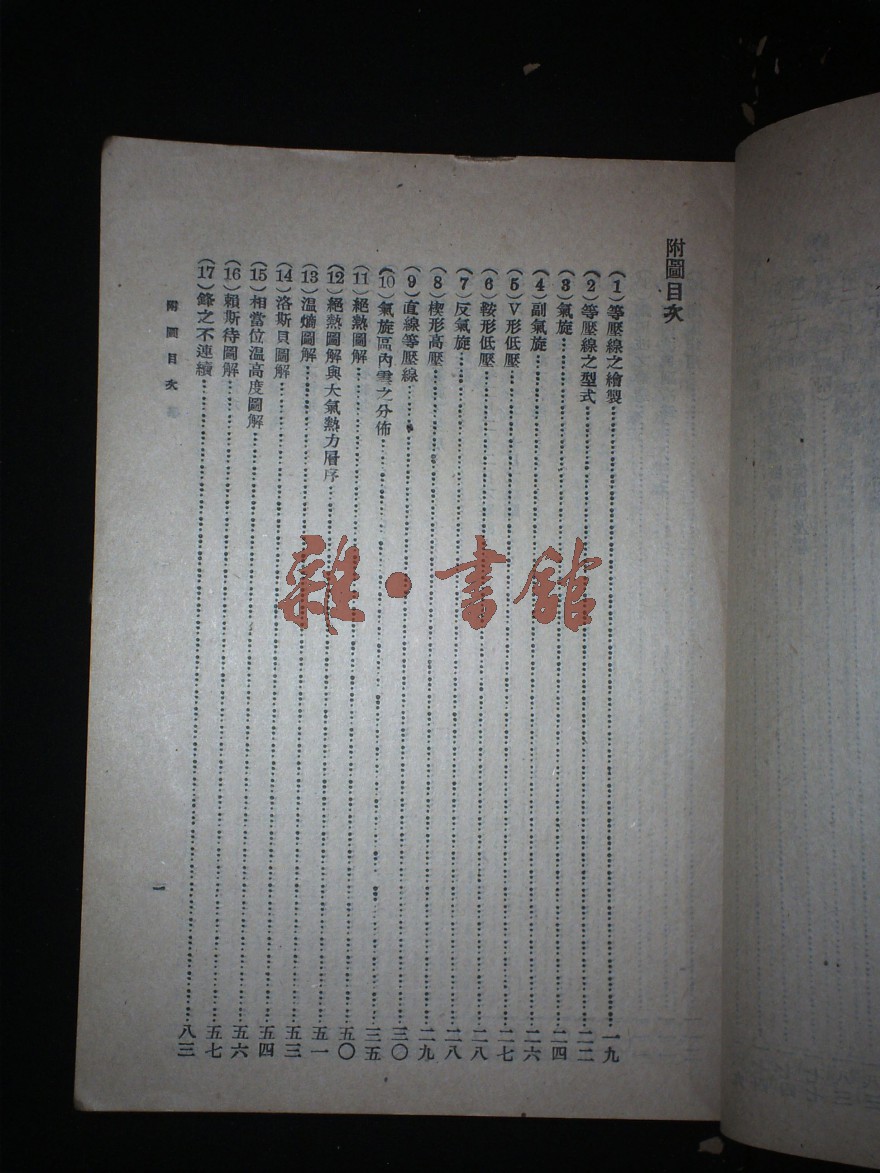 附圖目次
(1)等壓線之繪製……一九
(2)等壓線之型式……二二
(3)氣旋……二四
(4)副氣旋……二六
(5)V形低壓……二七
(6)鞍形低壓……二八
(7)反氣旋……二八
(8)楔形高壓……二九
(9)直線等壓線……三〇
(10)氣旋區內雲之分佈……三五
(11)絕熱圖解……五〇
(12)絕熱圖解與大氣熱力層序……五一
(13)溫熵圖解……五三
(14)洛斯貝圖解……五四
(15)相當位溫高度圖解……五六
(16)賴斯待圖解……五七
(17)鋒之不連續……八三
附圖目次
一
雜·書館